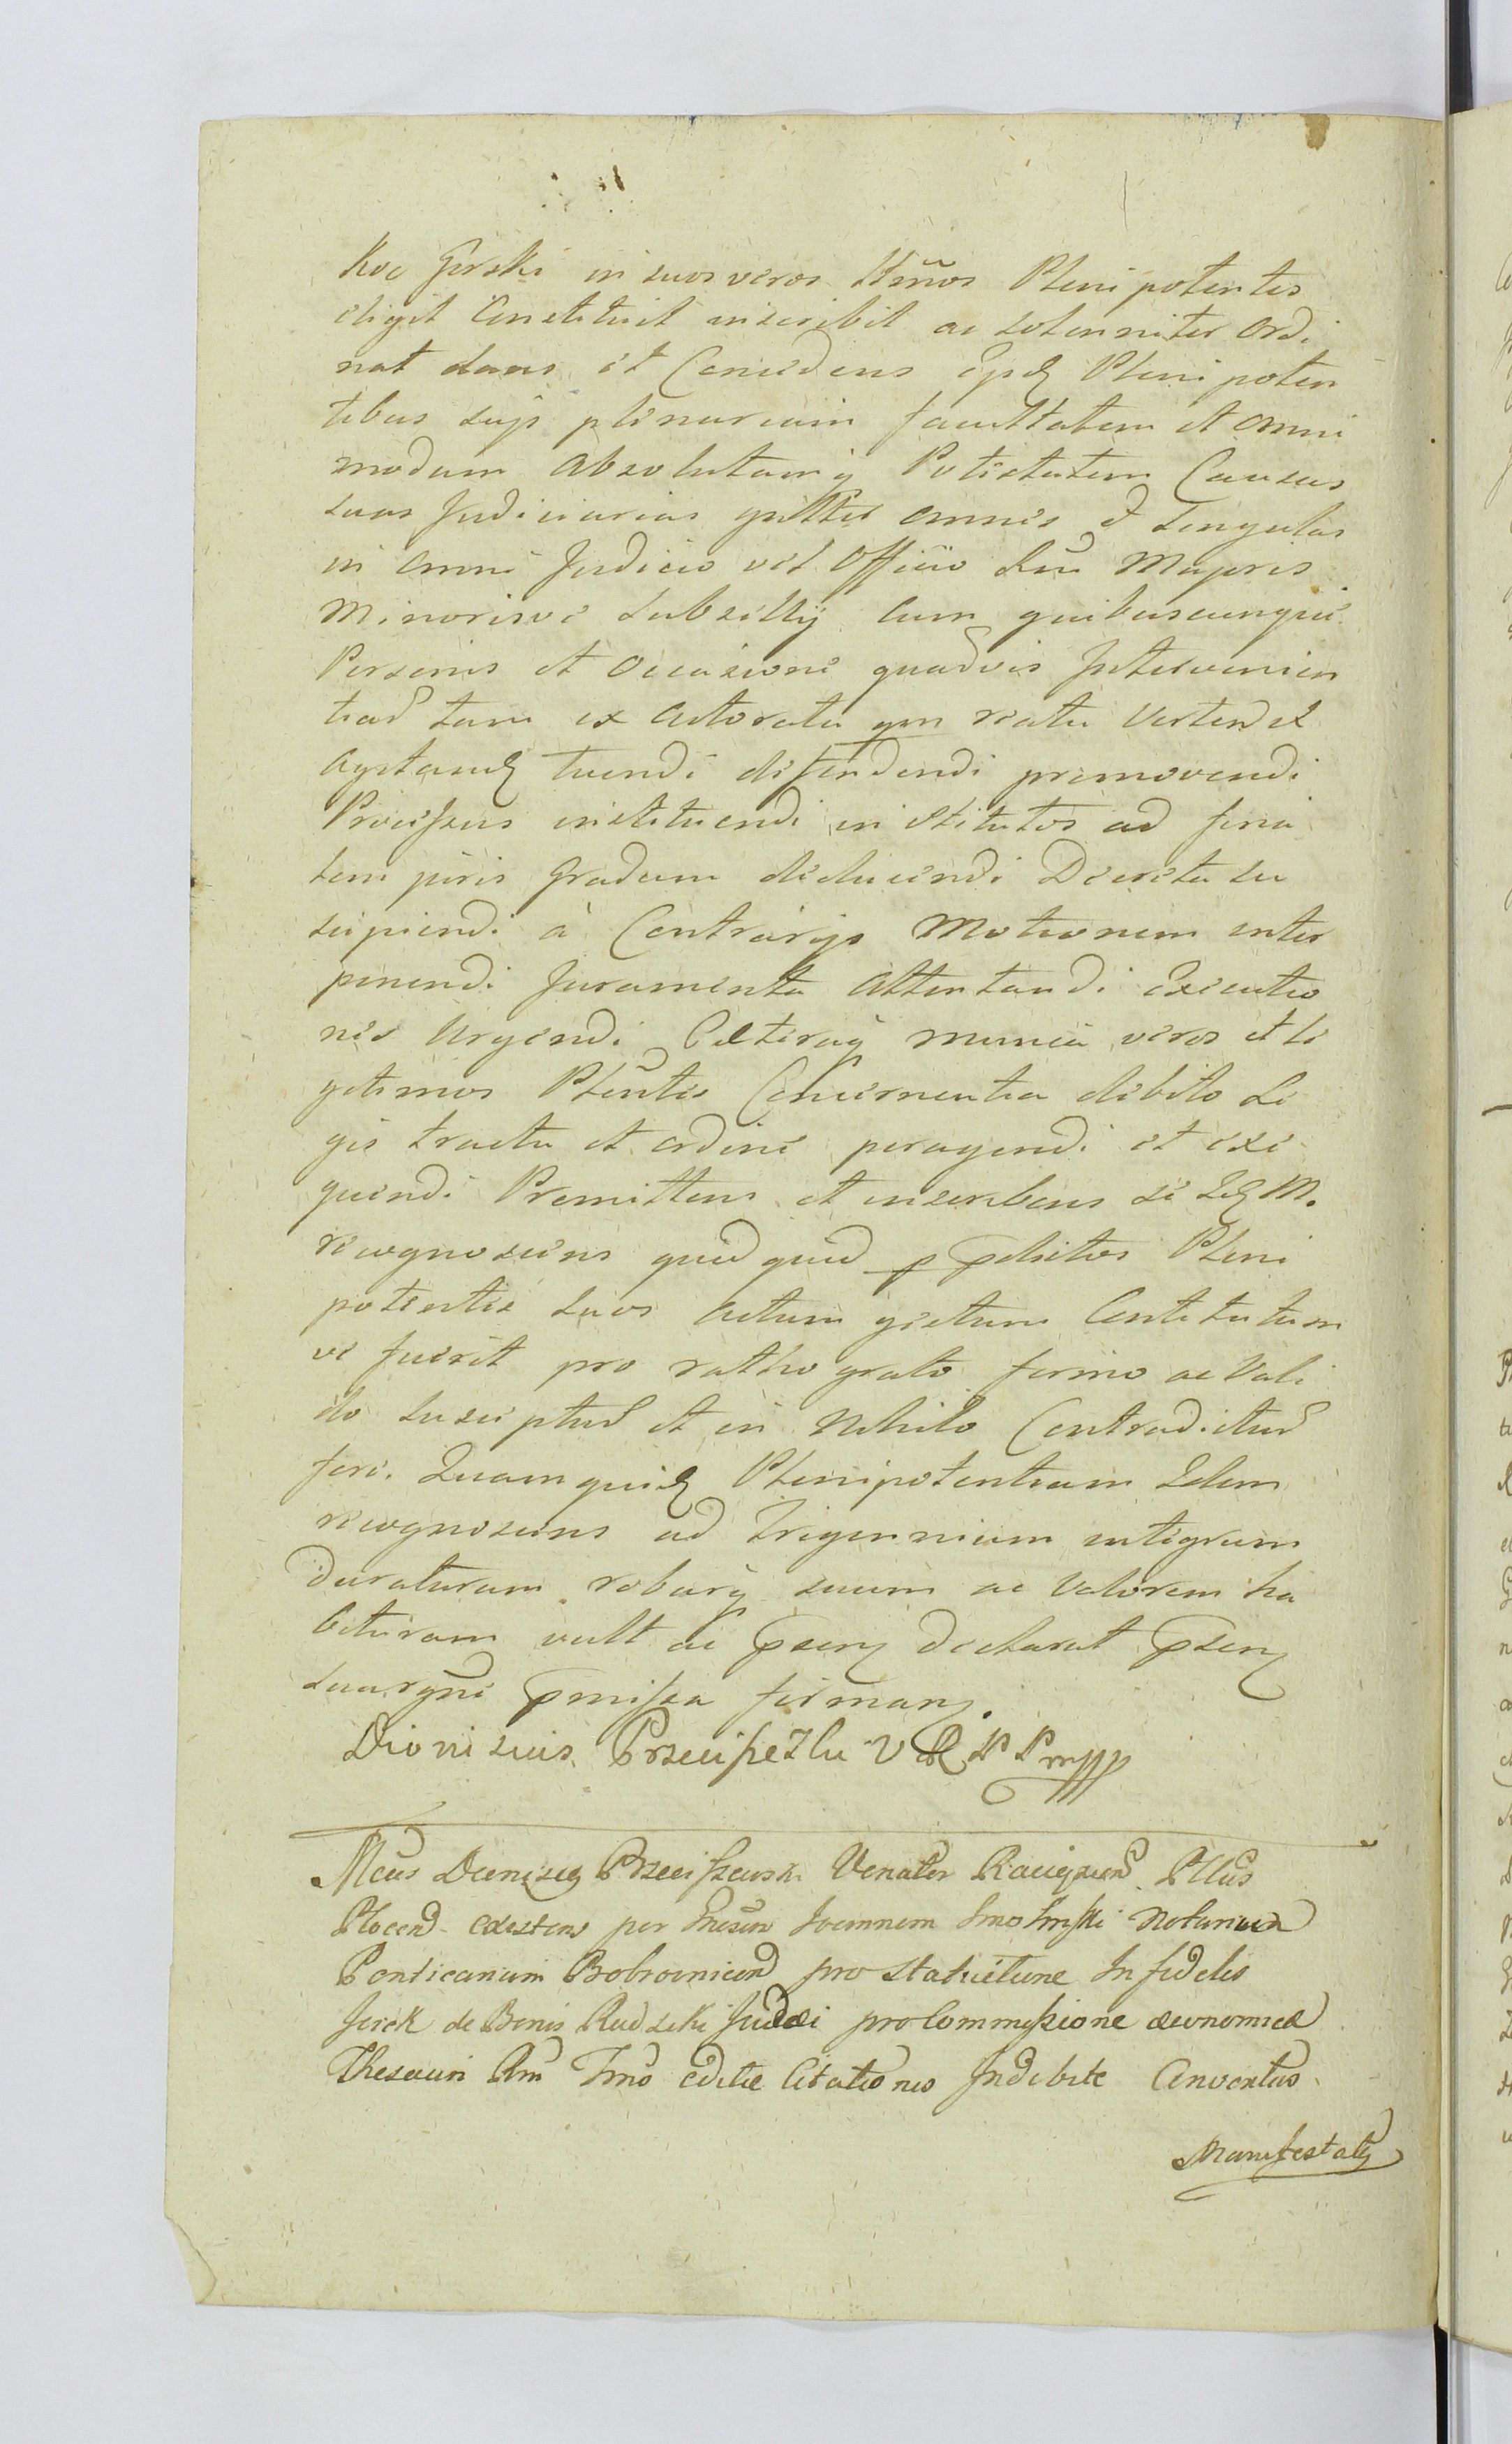 Koc Gorski in suos veros Ltmos Plenipotentes
eligit Constituit inscribit ac solenniter ordi
nat dans et Concedens Plenipoten
tibus suys plenariam facultatem et omni
modam absolutamq Potestatem Causas
suas Judiciarias gnlter omnes et singulas
in omni Judicio vel Officio Rni Majoris
Minorisve Subsellij cum quibuscunque
Personis et occasione quadvis Intervenien
tiad tam ex actoratu qm reatu vertend et
agitand tuendi defendendi promovendi
Processus instituendi institutos ad fina
lem juris Gradum deducendi Decreta su
scipiendi à Contrarys Motionem inter
ponendi Juramenta attentandi Executio
nes Urgendi Cæteraq munia veros et le
gitimos Plentes Concernentia debito Le
gis tractu et ordine peragendi et exe
quendi Promittens et inscribens se M.
recognoscens quid quid p Pleni
potentes suos actum gestum Constitutum
ve fuerit pro ratho grato firmo ac Vali
do suscipturd et in Nihilo Contradicturd
fore. Quam quid Plenipotentiam Idem
recognoscens ad Trigennium integrum
duraturam roburq suum ac Valorem ha
bituram vult ac psenz declarat psenz
suarqne pmissa firmanz.
Dionisius Przeciszezlu V R P P mppp
Mcus Dionizeg Przeciszewski Venator Raciązend Pllus
Plocend existens per Gnesum Joannem Notarium
Ponticanum Bobrownicend pro statuitione Infidelis
Jerek de Bonis Rudzeki Judæi pro Commissione æconomica
Thesauri Rni Imo editæ Citationis Indebite Conventus
Manifestatq